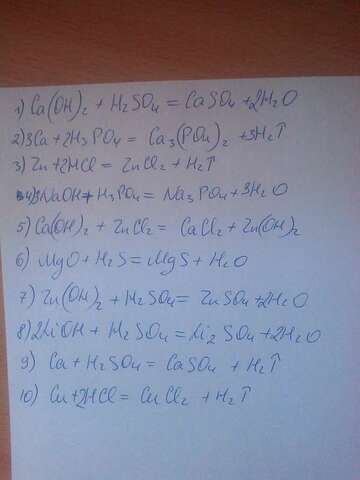 1) Ca(OH)₂ + H₂SO₄ = CaSO₄ + 2H₂O
2) 3Ca + 2H₃PO₄ = Ca₃(PO₄)₂ + 3H₂↑
3) Zn + 2HCl = ZnCl₂ + H₂↑
4) 3NaOH + H₃PO₄ = Na₃PO₄ + 3H₂O
5) Ca(OH)₂ + ZnCl₂ = CaCl₂ + Zn(OH)₂
6) MgO + H₂S = MgS + H₂O
7) Zn(OH)₂ + H₂SO₄ = ZnSO₄ + 2H₂O
8) 2LiOH + H₂SO₄ = Li₂SO₄ + 2H₂O
9) Ca + H₂SO₄ = CaSO₄ + H₂↑
10) Cu + 2HCl = CuCl₂ + H₂↑